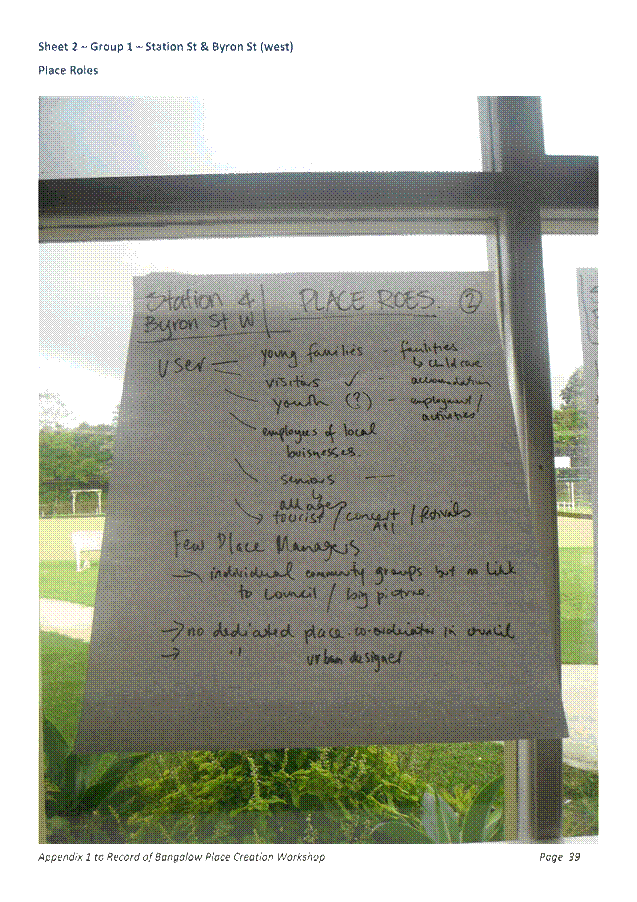 Sheet 2 – Group 1 – Station St & Byron St (west)
Place Roles
Station & | PLACE ROES. ②
Byron St W
User — young families - facilities
↳ child care
visitors ✓ - accomodation
youth (?) - employment /
activities
employees of local
buisnesses.
seniors —
↳
all ages
tourist / concert / festivals
A&I
Few Place Managers
→ individual community groups but no link
to Council / big picture.
→ no dedicated place co-ordinator in council
→ " urban designer
Appendix 1 to Record of Bangalow Place Creation Workshop Page 39